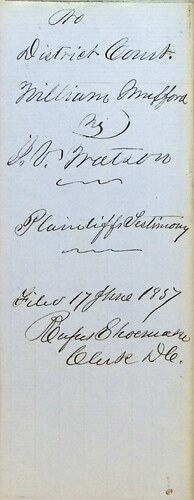 No
District Court.
William Mufford
vs
J. V. Watson
Plaintiffs Testimony
Filed 17 June 1857
Rufus Shoemaker
Clerk D.C.